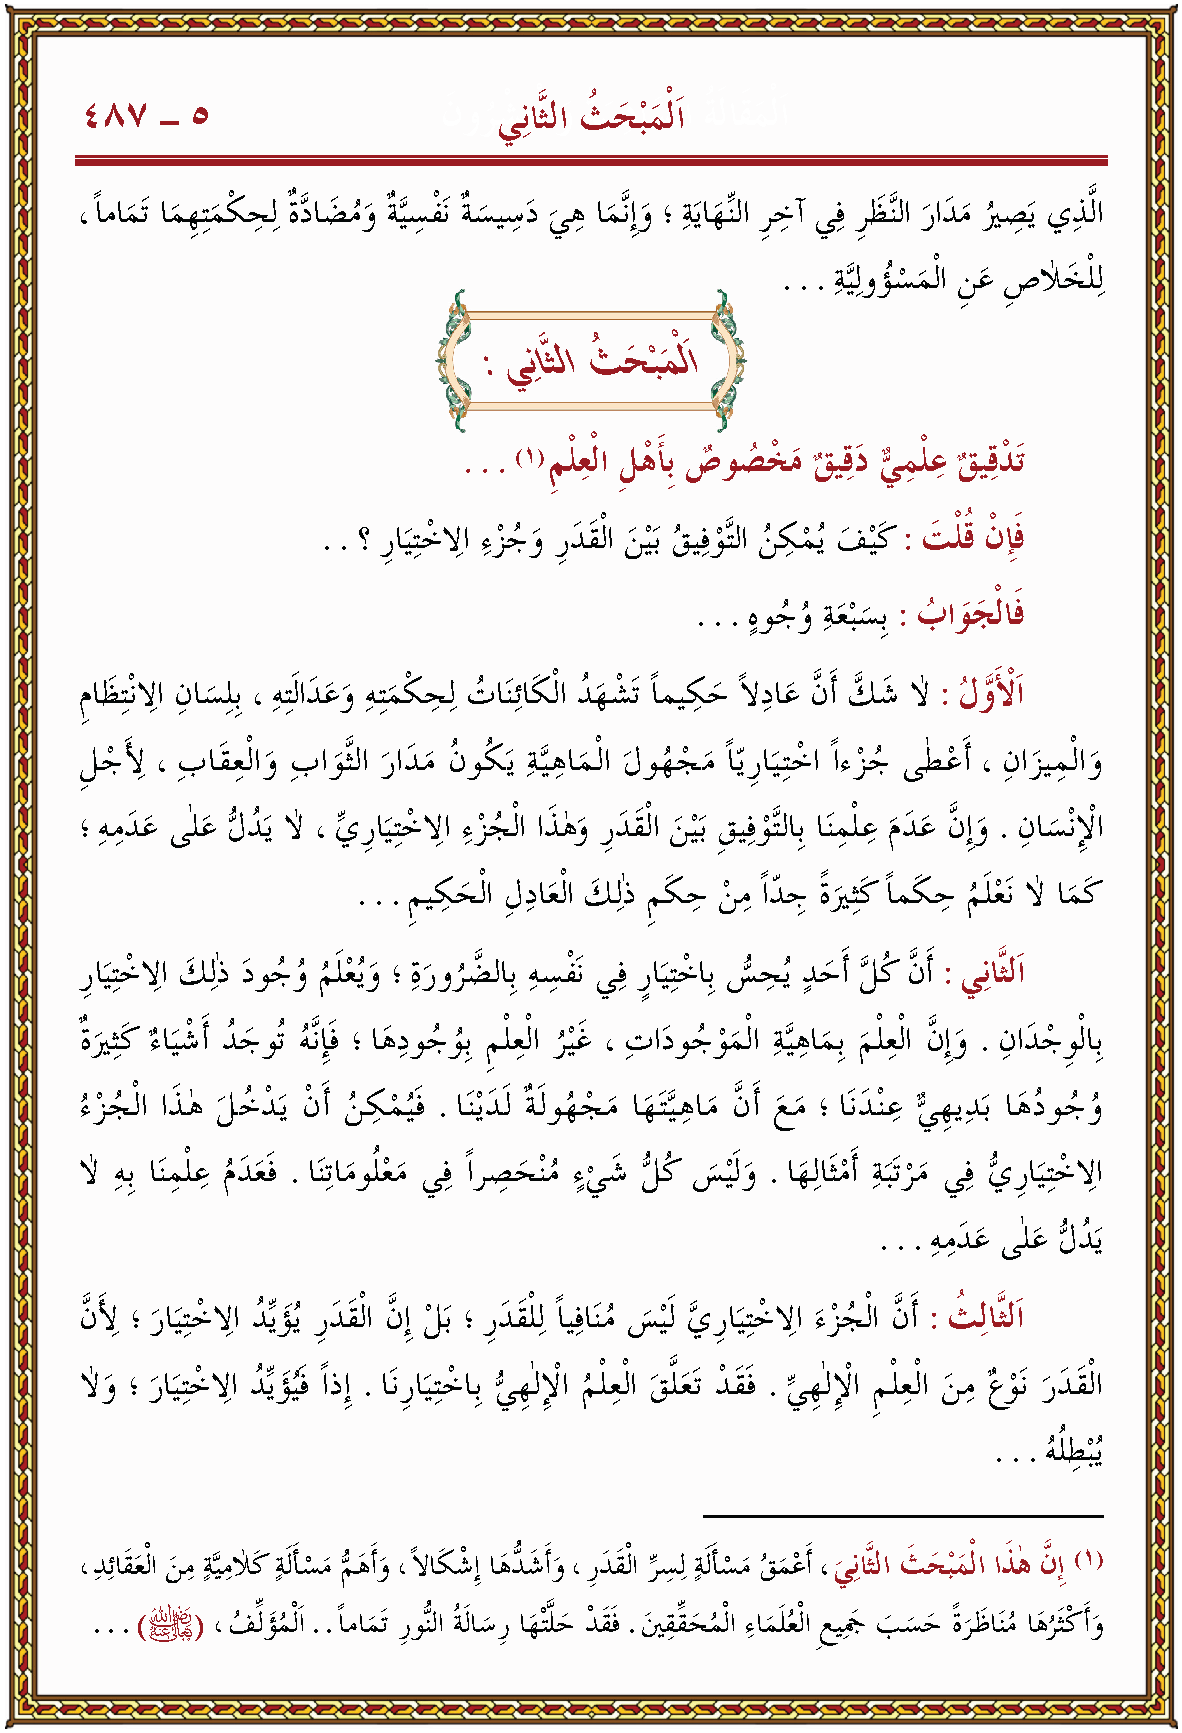 اَلْمَبْحَثُ الثَّانِي ٥ ـ ٤٨٧
الَّذِي يَصِيرُ مَدَارَ النَّظَرِ فِي آخِرِ النِّهَايَةِ ؛ وَإِنَّمَا هِيَ دَسِيسَةٌ نَفْسِيَّةٌ وَمُضَادَّةٌ لِحِكْمَتِهِمَا تَمَاماً ،
لِلْخَلاٰصِ عَنِ الْمَسْؤُولِيَّةِ . . .
اَلْمَبْحَثُ الثَّانِي :
تَدْقِيقٌ عِلْمِيٌّ دَقِيقٌ مَخْصُوصٌ بِأَهْلِ الْعِلْمِ (١) . . .
فَإِنْ قُلْتَ : كَيْفَ يُمْكِنُ التَّوْفِيقُ بَيْنَ الْقَدَرِ وَجُزْءِ الِاخْتِيَارِ ؟ . .
فَالْجَوَابُ : بِسَبْعَةِ وُجُوهٍ . . .
اَلْأَوَّلُ : لاٰ شَكَّ أَنَّ عَادِلاً حَكِيماً تَشْهَدُ الْكَائِنَاتُ لِحِكْمَتِهِ وَعَدَالَتِهِ ، بِلِسَانِ الِانْتِظَامِ
وَالْمِيزَانِ ، أَعْطٰى جُزْءاً اخْتِيَارِيّاً مَجْهُولَ الْمَاهِيَّةِ يَكُونُ مَدَارَ الثَّوَابِ وَالْعِقَابِ ، لِأَجْلِ
الْإِنْسَانِ . وَإِنَّ عَدَمَ عِلْمِنَا بِالتَّوْفِيقِ بَيْنَ الْقَدَرِ وَهٰذَا الْجُزْءِ الِاخْتِيَارِيِّ ، لاٰ يَدُلُّ عَلٰى عَدَمِهِ ؛
كَمَا لاٰ نَعْلَمُ حِكَماً كَثِيرَةً جِدّاً مِنْ حِكَمِ ذٰلِكَ الْعَادِلِ الْحَكِيمِ . . .
اَلثَّانِي : أَنَّ كُلَّ أَحَدٍ يُحِسُّ بِاخْتِيَارٍ فِي نَفْسِهِ بِالضَّرُورَةِ ؛ وَيُعْلَمُ وُجُودَ ذٰلِكَ الِاخْتِيَارِ
بِالْوِجْدَانِ . وَإِنَّ الْعِلْمَ بِمَاهِيَّةِ الْمَوْجُودَاتِ ، غَيْرُ الْعِلْمِ بِوُجُودِهَا ؛ فَإِنَّهُ تُوجَدُ أَشْيَاءٌ كَثِيرَةٌ
وُجُودُهَا بَدِيهِيٌّ عِنْدَنَا ؛ مَعَ أَنَّ مَاهِيَّتَهَا مَجْهُولَةٌ لَدَيْنَا . فَيُمْكِنُ أَنْ يَدْخُلَ هٰذَا الْجُزْءُ
الِاخْتِيَارِيُّ فِي مَرْتَبَةِ أَمْثَالِهَا . وَلَيْسَ كُلُّ شَيْءٍ مُنْحَصِراً فِي مَعْلُومَاتِنَا . فَعَدَمُ عِلْمِنَا بِهِ لاٰ
يَدُلُّ عَلٰى عَدَمِهِ . . .
اَلثَّالِثُ : أَنَّ الْجُزْءَ الِاخْتِيَارِيَّ لَيْسَ مُنَافِياً لِلْقَدَرِ ؛ بَلْ إِنَّ الْقَدَرَ يُؤَيِّدُ الِاخْتِيَارَ ؛ لِأَنَّ
الْقَدَرَ نَوْعٌ مِنَ الْعِلْمِ الْإِلٰهِيِّ . فَقَدْ تَعَلَّقَ الْعِلْمُ الْإِلٰهِيُّ بِاخْتِيَارِنَا . إِذاً فَيُؤَيِّدُ الِاخْتِيَارَ ؛ وَلاٰ
يُبْطِلُهُ . . .
(١) إِنَّ هٰذَا الْمَبْحَثَ الثَّانِيَ ، أَعْمَقُ مَسْأَلَةٍ لِسِرِّ الْقَدَرِ ، وَأَشَدُّهَا إِشْكَالاً ، وَأَهَمُّ مَسْأَلَةٍ كَلاٰمِيَّةٍ مِنَ الْعَقَائِدِ ،
وَأَكْثَرُهَا مُنَاظَرَةً حَسَبَ جَمِيعِ الْعُلَمَاءِ الْمُحَقِّقِينَ . فَقَدْ حَلَّتْهَا رِسَالَةُ النُّورِ تَمَاماً . . اَلْمُؤَلِّفُ ، (رَضِيَ اللهُ عَنْهُ) . . .